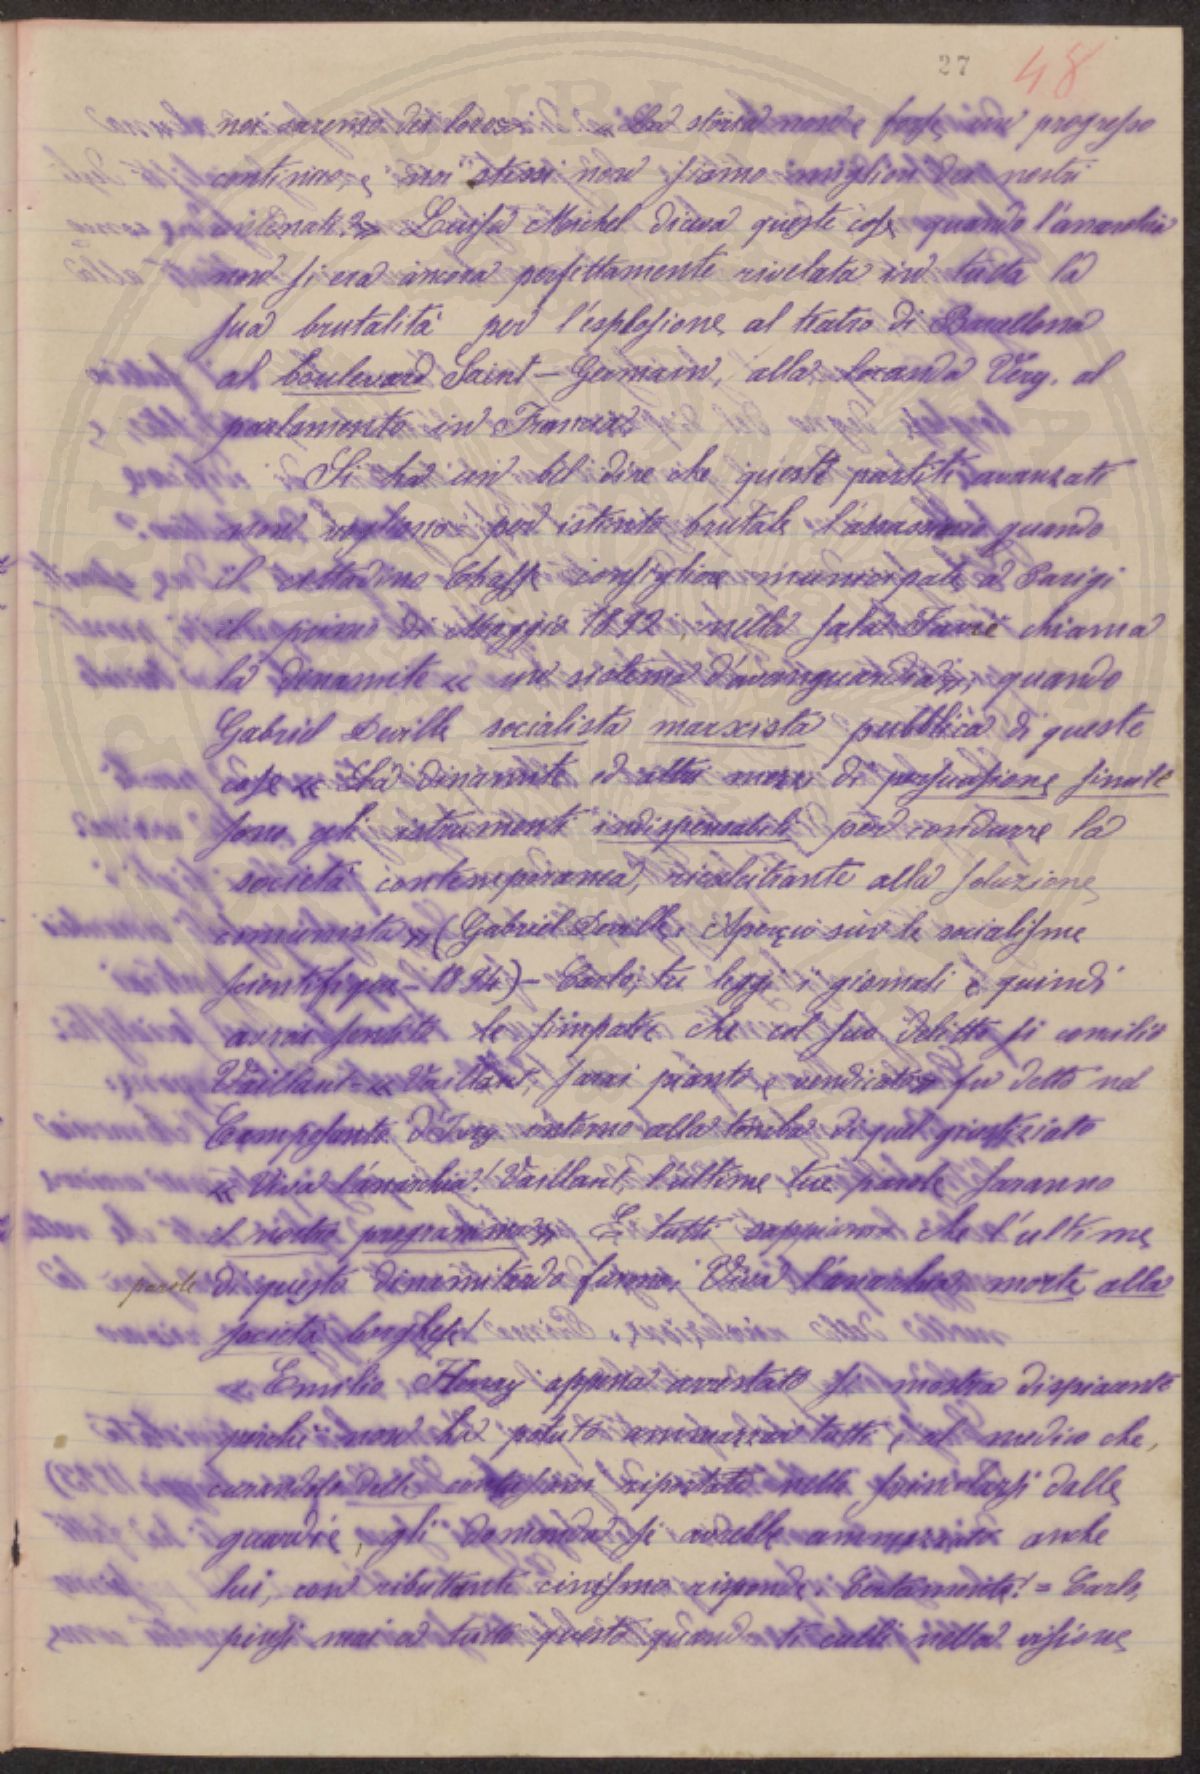 27 48
noi saremo dei loro». « La storia non è forse un progresso
continuo, e noi stessi non siamo migliori dei nostri
antenati?» Luisa Michel diceva queste cose quando l'anarchia
non si era ancora perfettamente rivelata in tutta la
sua brutalità per l'esplosione al teatro di Barcellona
al boulevard Saint-Germain, alla locanda Véry, al
parlamento in Francia.
Si ha un bel dire che questi partiti avanzati
non vogliono per istinto brutale l'assassinio quando
il cittadino Chaffe consigliere municipale a Parigi
il primo di Maggio 1892 nella sala Favié chiama
la dinamite « un sistema d'avanguardia», quando
Gabriel Deville socialista marxista pubblica di queste
cose « La dinamite ed altri mezzi di persuasione simile
sono gli istrumenti indispensabili per condurre la
società contemporanea, ricalcitrante alla soluzione
comunista» (Gabriel Deville. Aperçu sur le socialisme
scientifique - 1894) - Carlo, tu leggi i giornali e quindi
avrai sentito le simpatie che col suo delitto si conciliò
Vaillant - « Vaillant, sarai pianto e vendicato» fu detto nel
Camposanto d'Ivry intorno alla tomba di quel giustiziato
« Viva l'anarchia! Vaillant, l'ultime tue parole saranno
il nostro programma». E tutti sappiamo che l'ultime
parole di questo dinamitardo furono: Viva l'anarchia, morte alla
società borghese!
« Emilio Henry appena arrestato si mostra dispiacente
perchè non ha potuto ammazzar tutti e al medico che,
curandolo delle contusioni riportate nello svincolarsi dalle
guardie, gli domanda se avrebbe ammazzato anche
lui, con ributtante cinismo risponde: Certamente! = Carlo,
pensi mai a tutto questo quando ti culli nella visione